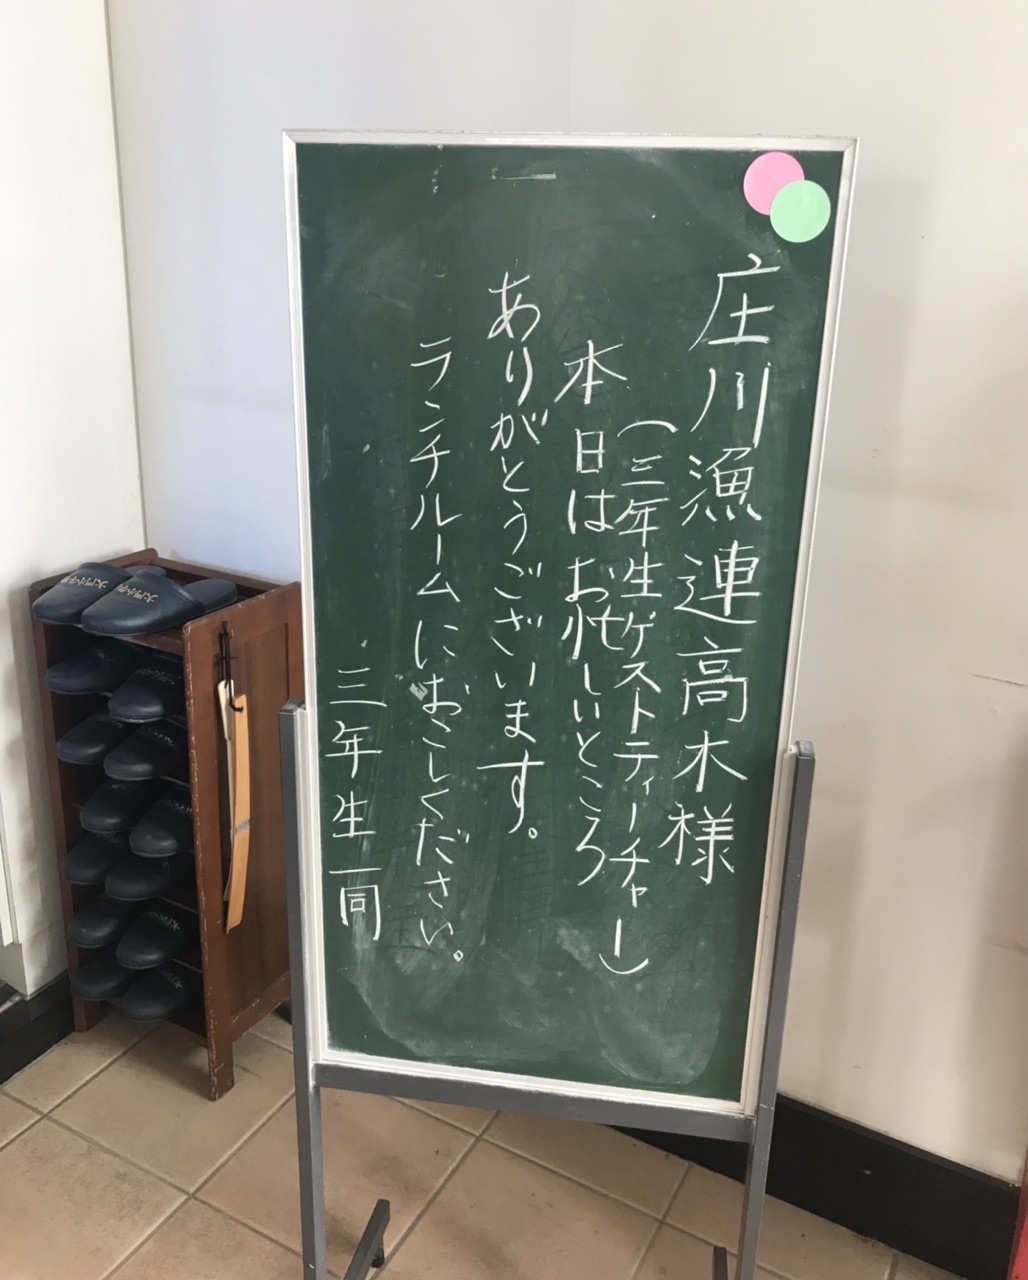 庄川漁連高木様
（三年生ゲストティーチャー）
本日はお忙しいところ
ありがとうございます。
ランチルームにおこしください。
三年生一同
大門小学校